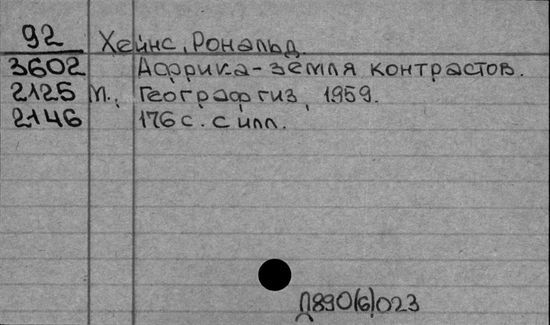 92 Хейнс, Рональд.
3602 Африка-земля контрастов.
2125 М., Географгиз, 1959.
2146 176 с. с илл.
Л890(6)023